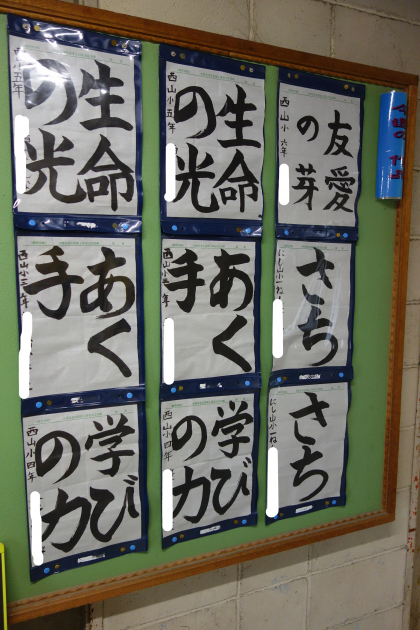 友愛
の芽
西山小 六年
生命
の光
西山小五年
生命
の光
小五年
さち
にし山小一ね
あく
手
西山小
あく
手
西山小
さち
にし山小一ね
学び
の力
西山小四年
学び
の力
西山小四年